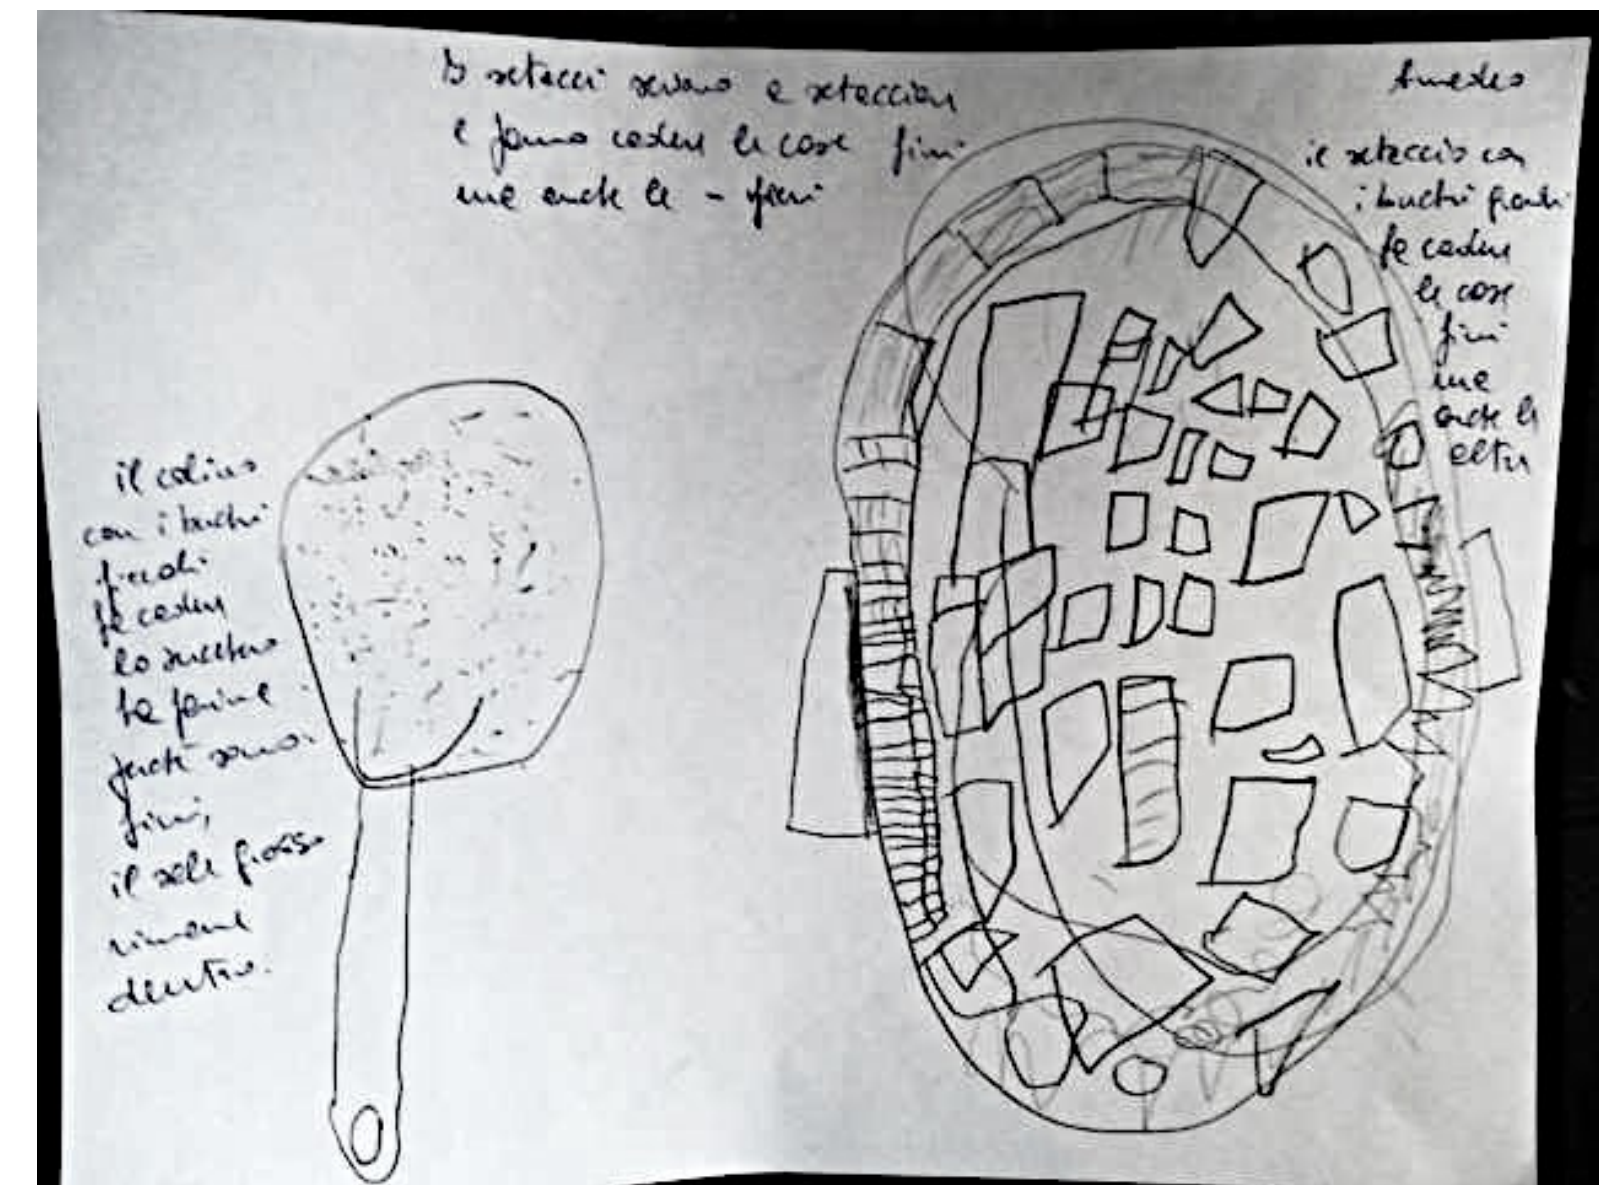 I setacci servono a setacciare
e fanno cadere le cose fini
ma anche le - fini
Amedeo
il setaccio con
i buchi grandi
fa cadere
le cose
fini
ma
anche le
altre
il colino
con i buchi
piccoli
fa cadere
lo zucchero
la farina
perché sono
fini,
il sale grosso
rimane
dentro.